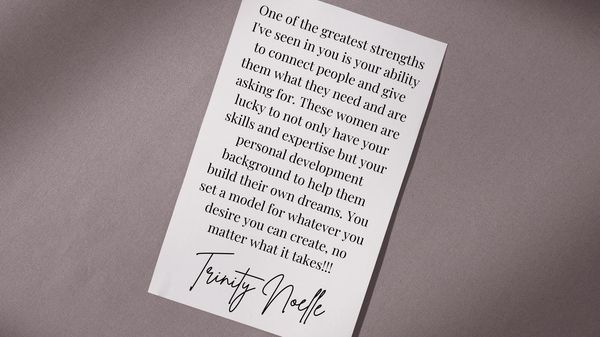 One of the greatest strengths
I've seen in you is your ability
to connect people and give
them what they need and are
asking for. These women are
lucky to not only have your
skills and expertise but your
personal development
background to help them
build their own dreams. You
set a model for whatever you
desire you can create, no
matter what it takes!!!
Trinity Noelle